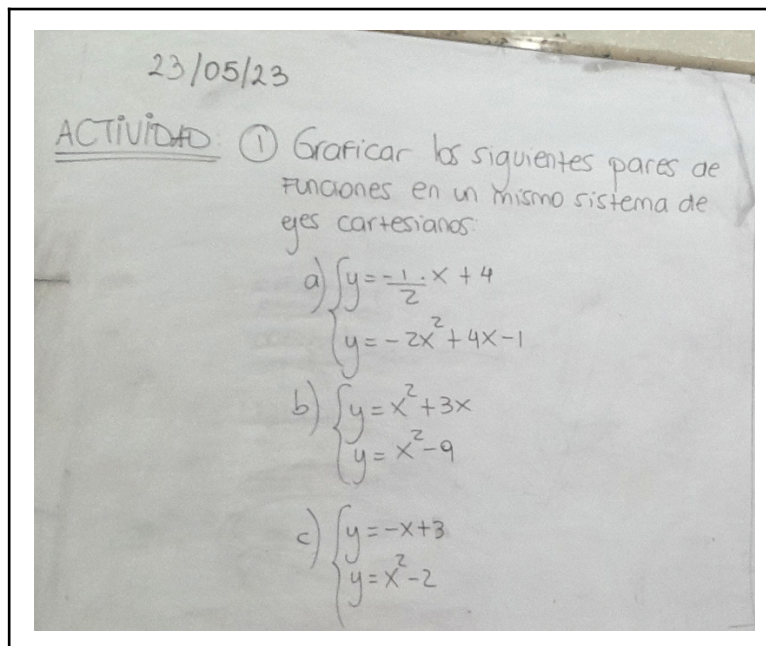 23/05/23
ACTIVIDAD: ① Graficar los siguientes pares de
Funciones en un mismo sistema de
ejes cartesianos:
a) { y = -1/2 · x + 4
y = -2x² + 4x - 1
b) { y = x² + 3x
y = x² - 9
c) { y = -x + 3
y = x² - 2